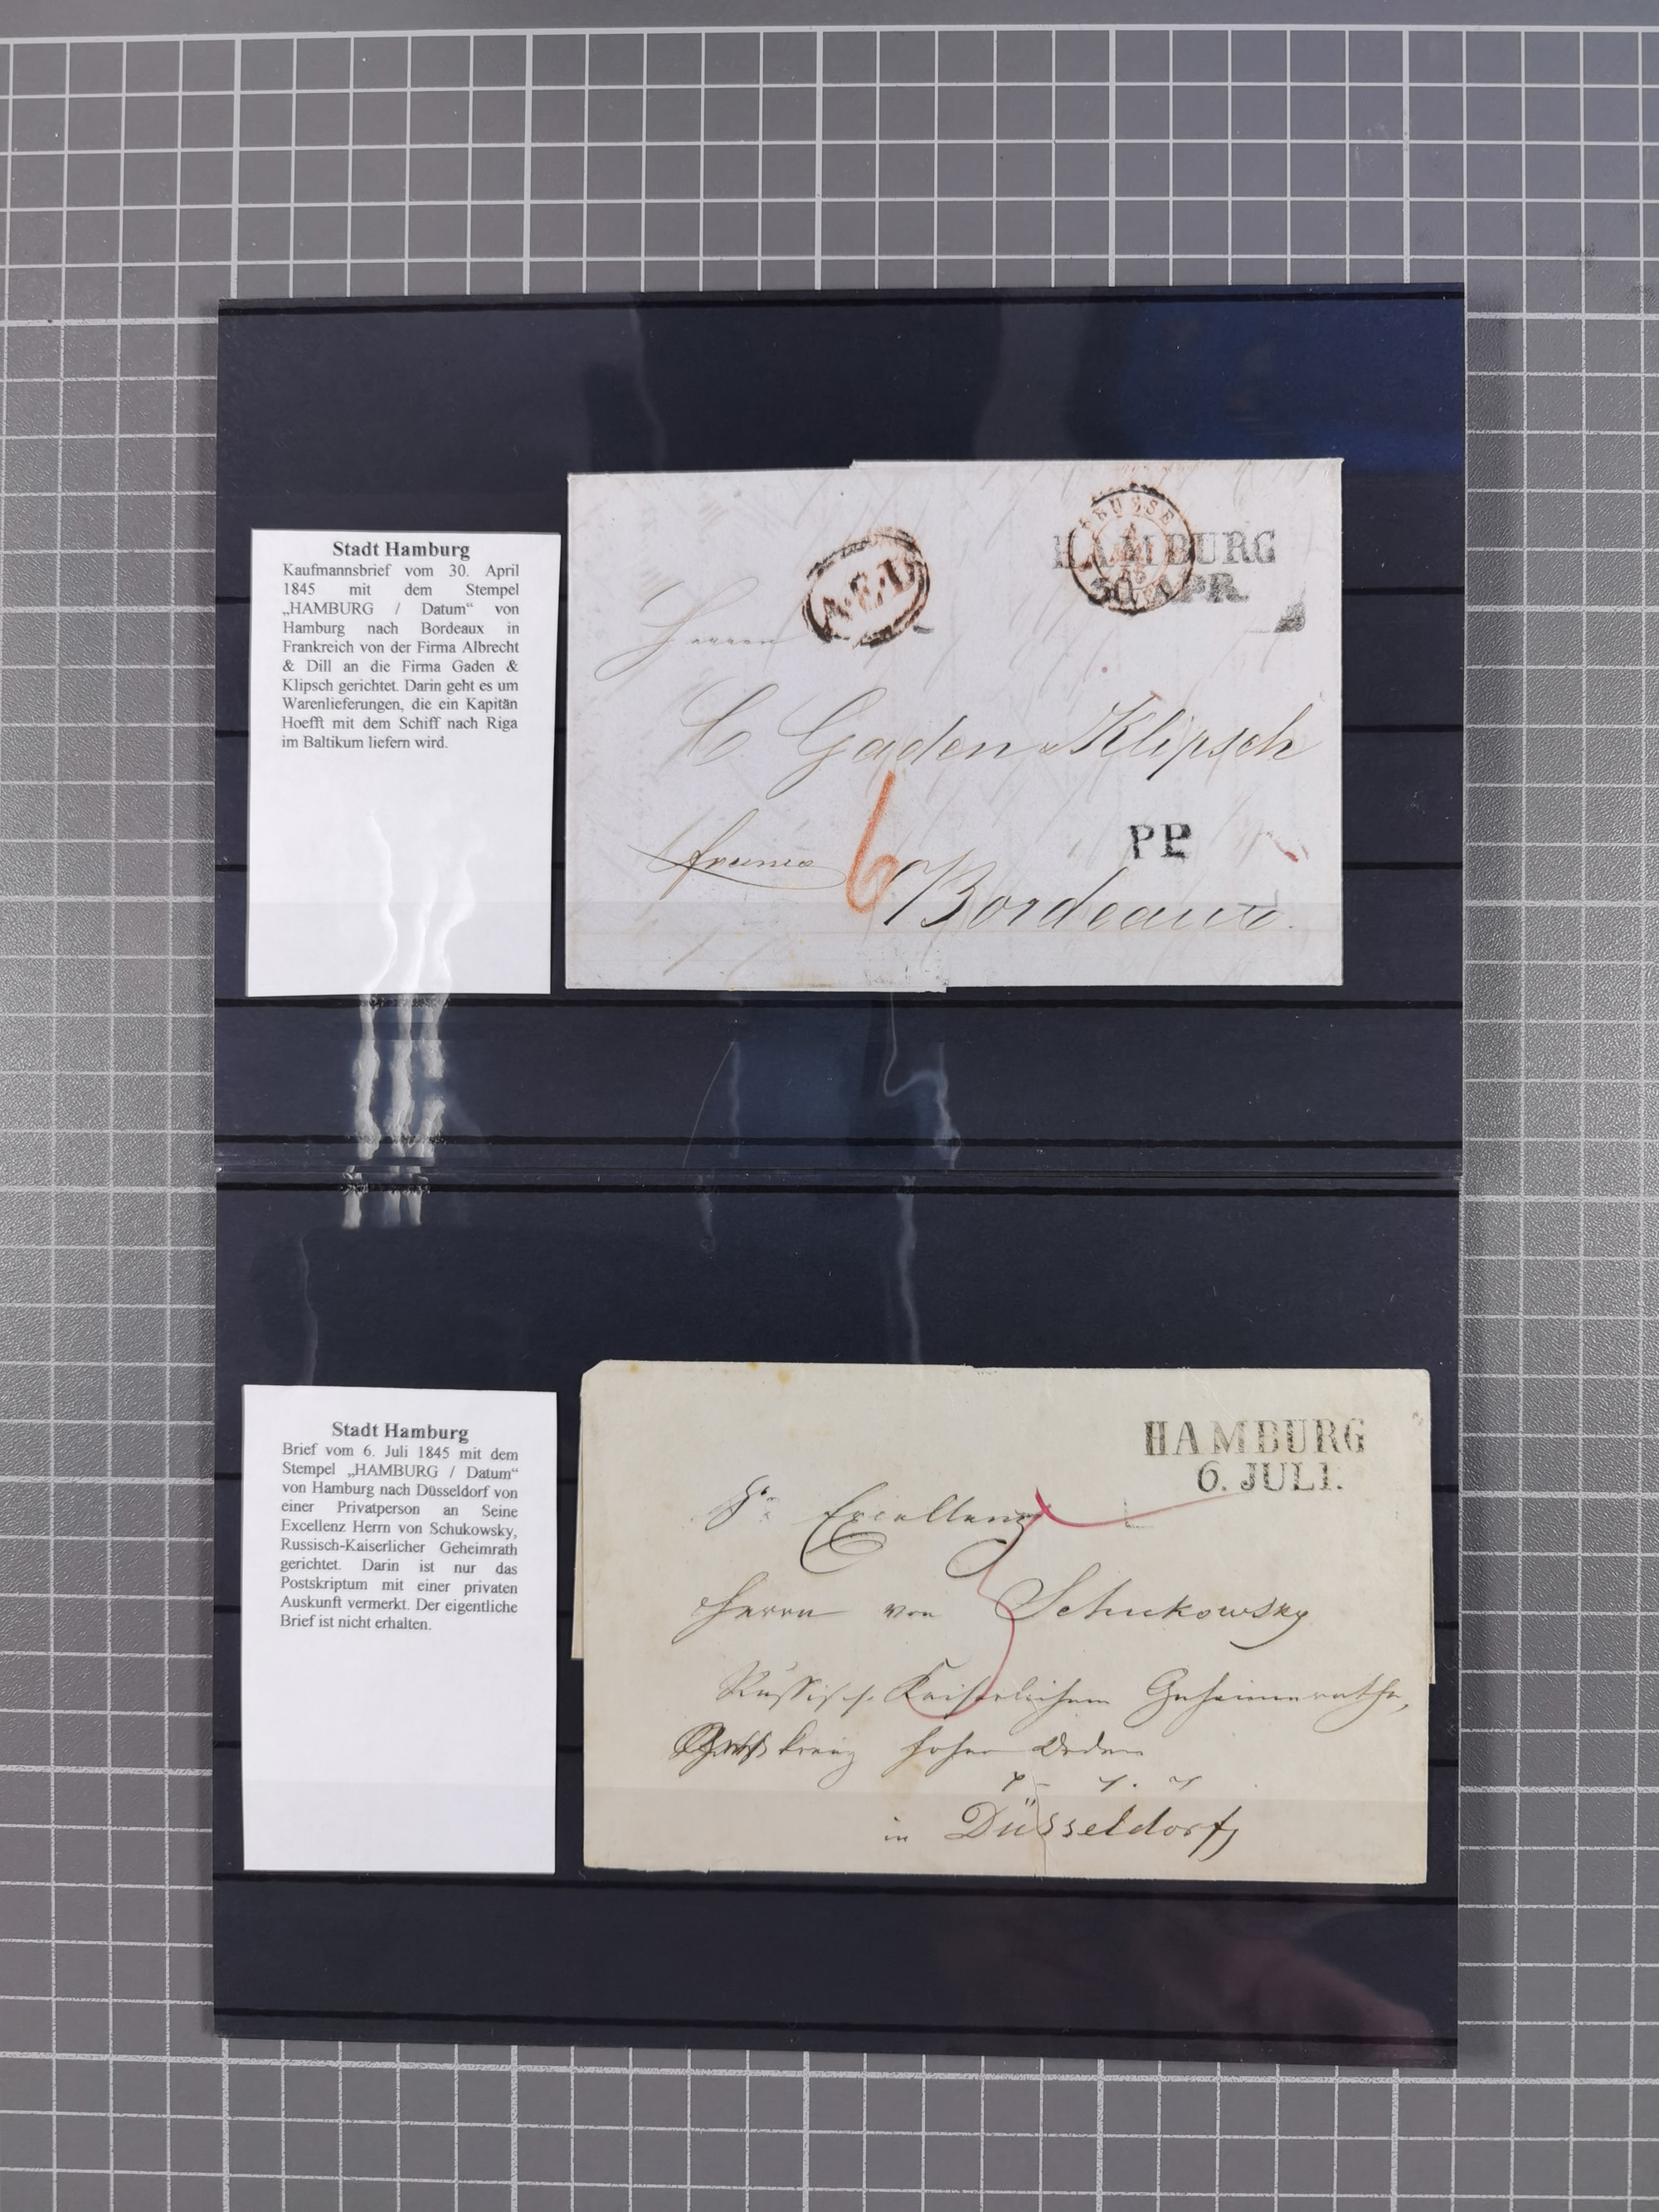 Stadt Hamburg
Kaufmannsbrief vom 30. April
1845 mit dem Stempel
„HAMBURG / Datum“ von
Hamburg nach Bordeaux in
Frankreich von der Firma Albrecht
& Dill an die Firma Gaden &
Klipsch gerichtet. Darin geht es um
Warenlieferungen, die ein Kapitän
Hoefft mit dem Schiff nach Riga
im Baltikum liefern wird.
A.E.D.
HAMBURG
30. APR.
Herren
Gaden & Klipsch
franco
6
P.P.
Bordeaux.
Stadt Hamburg
Brief vom 6. Juli 1845 mit dem
Stempel „HAMBURG / Datum“
von Hamburg nach Düsseldorf von
einer Privatperson an Seine
Excellenz Herrn von Schukowsky,
Russisch-Kaiserlicher Geheimrath
gerichtet. Darin ist nur das
Postskriptum mit einer privaten
Auskunft vermerkt. Der eigentliche
Brief ist nicht erhalten.
HAMBURG
6. JULI.
Sr. Excellenz
Herrn von Schukowsky
Russisch. Kaiserlichem Geheimenrathe,
hoher Orden
in Düsseldorf